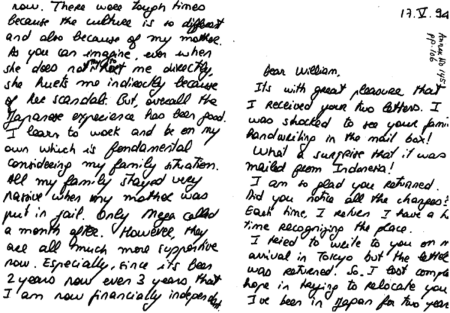 17.V.94
Dear William,
It's with great pleasure that
I received your two letters. I
was shocked to see your fami
handwriting in the mail box!
What a surprise that it was
mailed from Indonesia!
I am so glad you returned.
Did you notice all the changes?
Each time, I return I have a h
time recognizing the place.
I tried to write to you on m
arrival in Tokyo but the letter
was returned. So, I lost comple
hope in trying to relocate you
I've been in Japan for two year
now. There were tough times
because the culture is so different
and also because of my mother.
As you can imagine, even when
she does not hurt me directly,
she hurts me indirectly because
of her scandals. But, overall the
Japanese experience has been good.
I learn to work and be on my
own which is fondamental
considering my family situation.
All my family stayed very
passive when my mother was
put in jail. Only Mega called
a month after. However, they
are all much more supportive
now. Especially, since it's been
2 years now even 3 years, that
I am now financially independent.